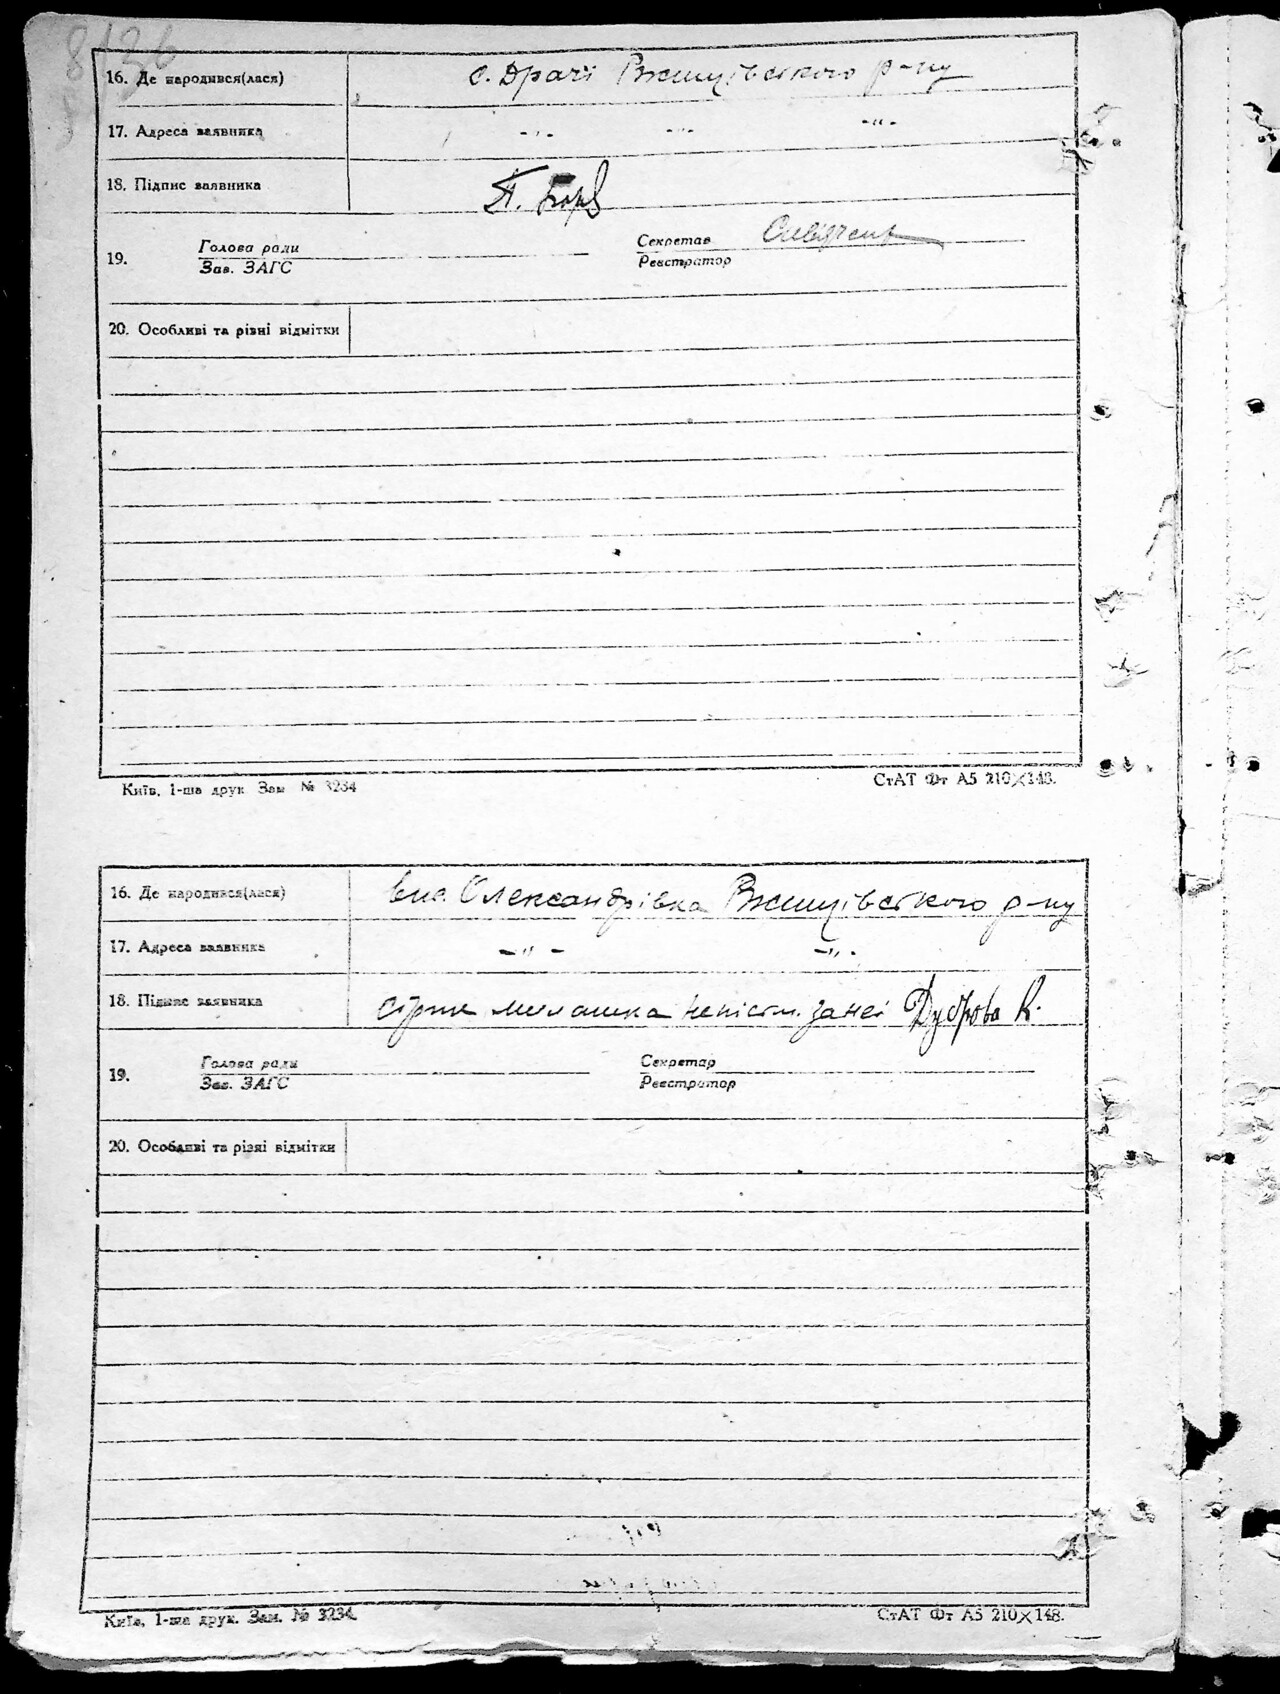 813б
16. Де народився(лася) с. Драчі Ржищівського р-ну
17. Адреса заявника -"- -"- -"-
18. Підпис заявника П.
19. Голова ради Секретар
Зав. ЗАГС Реєстратор
20. Особливі та різні відмітки
Київ, 1-ша друк Зам № 3234 СтАТ Фт А5 210×148.
16. Де народився(лася) Олександрівка Ржищівського р-ну
17. Адреса заявника -"- -"-
18. Підпис заявника мелашка неписьм. за неї Дуброва К.
19. Голова ради Секретар
Зав. ЗАГС Реєстратор
20. Особливі та різні відмітки
Київ, 1-ша друк. Зам. № 3234 СтАТ Фт А5 210×148.